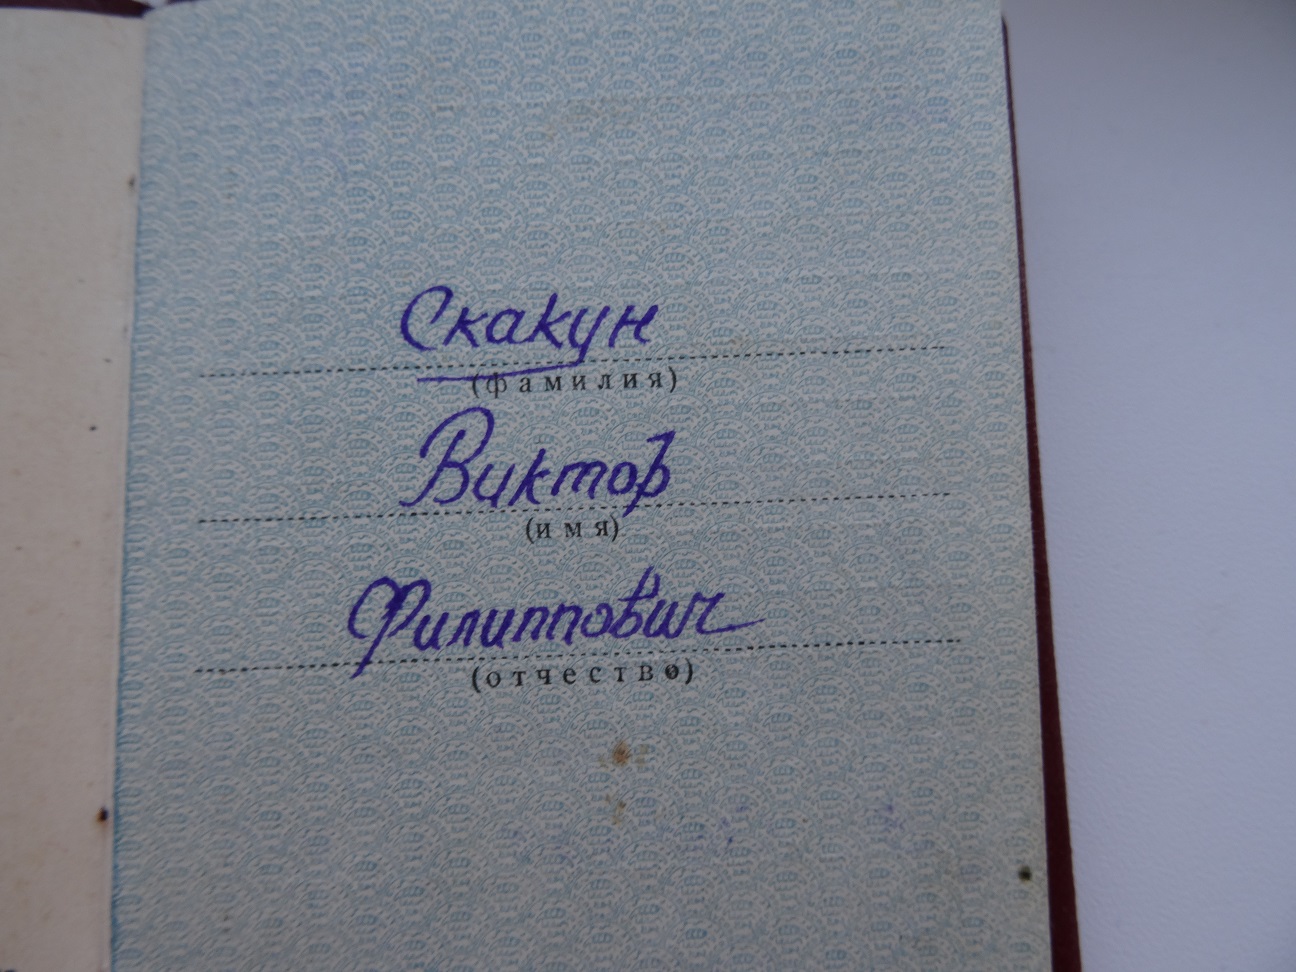 Скакун
(фамилия)
Виктор
(имя)
Филиппович
(отчество)